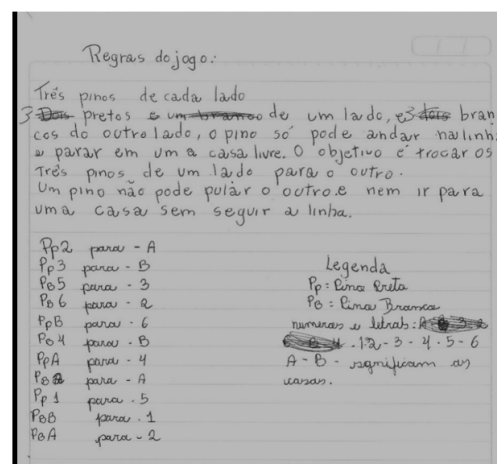 Regras do jogo:
Três pinos de cada lado
3 Dois pretos e um branco de um lado, e 3 dois bran
cos do outro lado, o pino só pode andar na linha
e parar em uma casa livre. O objetivo é trocar os
Três pinos de um lado para o outro.
Um pino não pode pular o outro e nem ir para
uma casa sem seguir a linha.
Pp2 para - A
Pp3 para - B
PB5 para - 3
PB6 para - 2
PpB para - 6
PB4 para - B
PpA para - 4
PB2 para - A
Pp1 para - 5
PBB para - 1
PBA para - 2
Legenda
Pp: Pino Preto
PB: Pino Branco
numeros e letras: A
- 1 2 - 3 - 4 - 5 - 6
A - B - significam as
casas.